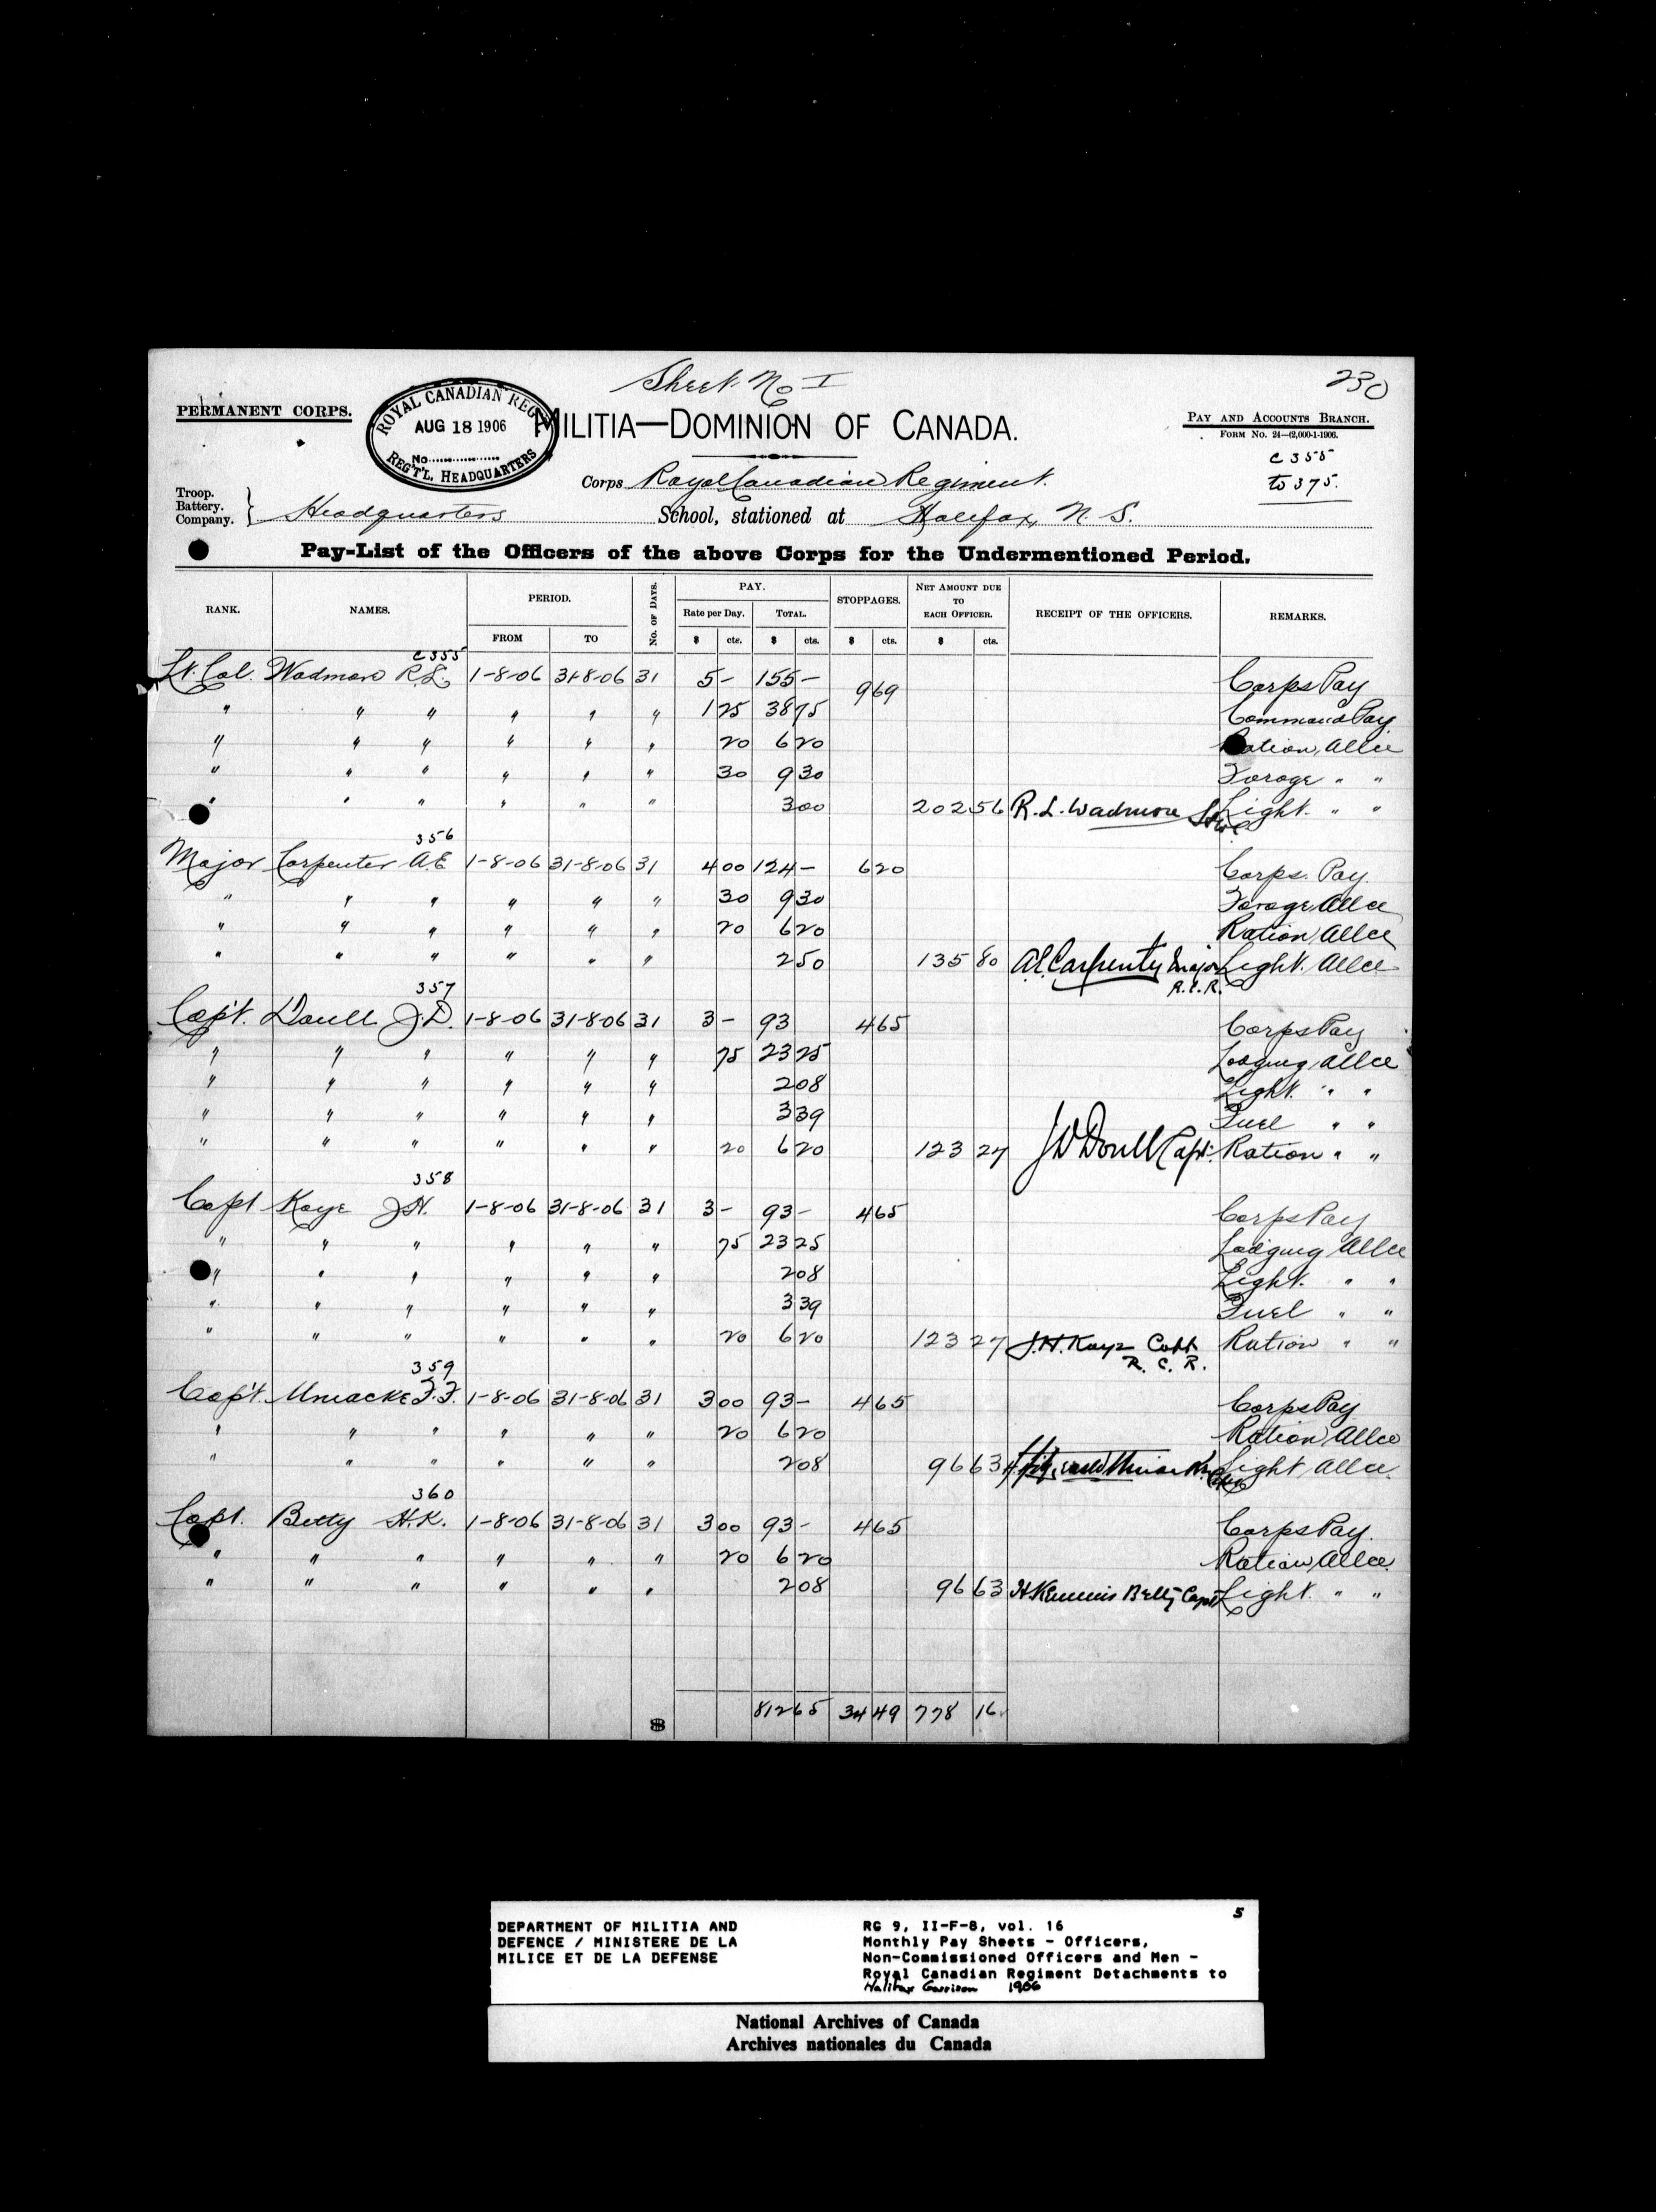 Sheet No I
230
PERMANENT CORPS.
ROYAL CANADIAN REG'T
AUG 18 1906
No.
REG'T'L. HEADQUARTERS
MILITIA—DOMINION OF CANADA.
PAY AND ACCOUNTS BRANCH.
FORM No. 24—(2,000-1-1906.
C 355
to 375.
Corps Royal Canadian Regiment.
Troop.
Battery.
Company. } Headquarters School, stationed at Halifax, N. S.
Pay-List of the Officers of the above Corps for the Undermentioned Period.
RANK. NAMES. PERIOD. No. of Days. PAY. STOPPAGES. NET AMOUNT DUE TO EACH OFFICER. RECEIPT OF THE OFFICERS. REMARKS.
FROM TO Rate per Day. TOTAL.
$ cts. $ cts. $ cts. $ cts.
C 355
Lt. Col. Wadmore R.L. 1-8-06 31-8-06 31 5 - 155 - 9 69 Corps Pay
" " " " " " 1 25 38 75 Command Pay
" " " " " " 20 6 20 Ration Allce
" " " " " " 30 9 30 Forage " "
" " " " " " 3 00 202 56 R. L. Wadmore Light. " "
356
Major Carpenter A.E 1-8-06 31-8-06 31 4 00 124 - 6 20 Corps. Pay.
" " " " " " 30 9 30 Forage Allce
" " " " " " 20 6 20 Ration Allce
" " " " " " 2 50 135 80 A.E. Carpenter Major Light. Allce
R.C.R.
357
Capt. Doull J.D. 1-8-06 31-8-06 31 3 - 93 4 65 Corps Pay
" " " " " " 75 23 25 Lodging Allce
" " " " " " 2 08 Light. " "
" " " " " " 3 39 Fuel " "
" " " " " " 20 6 20 123 27 J D Doull Capt. Ration " "
358
Capt Kaye J.H. 1-8-06 31-8-06 31 3 - 93 - 4 65 Corps Pay
" " " " " " 75 23 25 Lodging Allce
" " " " " " 2 08 Light. " "
" " " " " " 3 39 Fuel " "
" " " " " " 20 6 20 123 27 J.H. Kaye Capt Ration " "
R. C. R.
359
Capt. Uniacke F.F. 1-8-06 31-8-06 31 3 00 93 - 4 65 Corps Pay
" " " " " " 20 6 20 Ration Allce
" " " " " " 2 08 96 63 Light Allce.
360
Capt. Betty H.K. 1-8-06 31-8-06 31 3 00 93 - 4 65 Corps Pay.
" " " " " " 20 6 20 Ration Allce.
" " " " " " 2 08 96 63 H Kemmis Betty Capt Light. " "
812 65 34 49 778 16.
5
DEPARTMENT OF MILITIA AND
DEFENCE / MINISTERE DE LA
MILICE ET DE LA DEFENSE
RG 9, II-F-8, vol. 16
Monthly Pay Sheets - Officers,
Non-Commissioned Officers and Men -
Royal Canadian Regiment Detachments to
Halifax Garrison 1906
National Archives of Canada
Archives nationales du Canada